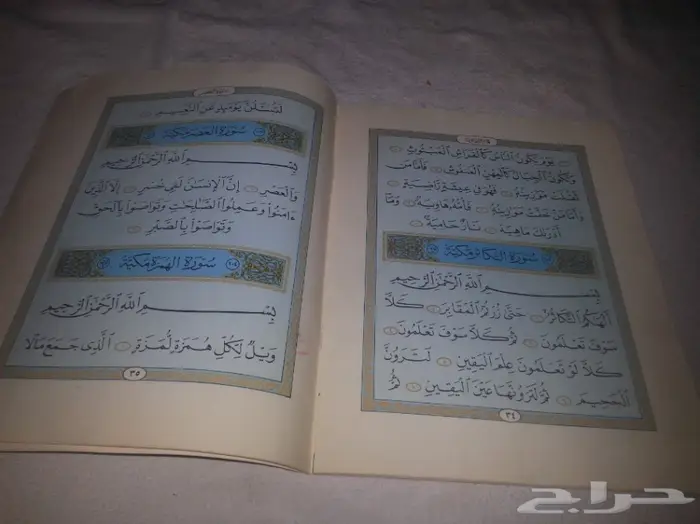 يَوْمَ يَكُونُ ٱلنَّاسُ كَٱلْفَرَاشِ ٱلْمَبْثُوثِ
وَتَكُونُ ٱلْجِبَالُ كَٱلْعِهْنِ ٱلْمَنفُوشِ فَأَمَّا مَن
ثَقُلَتْ مَوَٰزِينُهُۥ فَهُوَ فِى عِيشَةٍ رَّاضِيَةٍ
وَأَمَّا مَنْ خَفَّتْ مَوَٰزِينُهُۥ فَأُمُّهُۥ هَاوِيَةٌ وَمَآ
أَدْرَىٰكَ مَا هِيَهْ نَارٌ حَامِيَةٌ
سُورَةُ التَّكَاثُرِ مَكِّيَّة
بِسْمِ ٱللَّهِ ٱلرَّحْمَٰنِ ٱلرَّحِيمِ
أَلْهَىٰكُمُ ٱلتَّكَاثُرُ حَتَّىٰ زُرْتُمُ ٱلْمَقَابِرَ كَلَّا
سَوْفَ تَعْلَمُونَ ثُمَّ كَلَّا سَوْفَ تَعْلَمُونَ
كَلَّا لَوْ تَعْلَمُونَ عِلْمَ ٱلْيَقِينِ لَتَرَوُنَّ
ٱلْجَحِيمَ ثُمَّ لَتَرَوُنَّهَا عَيْنَ ٱلْيَقِينِ ثُمَّ
٣٤
لَتُسْـَٔلُنَّ يَوْمَئِذٍ عَنِ ٱلنَّعِيمِ
سُورَةُ العَصْرِ مَكِّيَّة
بِسْمِ ٱللَّهِ ٱلرَّحْمَٰنِ ٱلرَّحِيمِ
وَٱلْعَصْرِ إِنَّ ٱلْإِنسَٰنَ لَفِى خُسْرٍ إِلَّا ٱلَّذِينَ
ءَامَنُوا۟ وَعَمِلُوا۟ ٱلصَّٰلِحَٰتِ وَتَوَاصَوْا۟ بِٱلْحَقِّ
وَتَوَاصَوْا۟ بِٱلصَّبْرِ
سُورَةُ الهُمَزَةِ مَكِّيَّة
بِسْمِ ٱللَّهِ ٱلرَّحْمَٰنِ ٱلرَّحِيمِ
وَيْلٌ لِّكُلِّ هُمَزَةٍ لُّمَزَةٍ ٱلَّذِى جَمَعَ مَالًا
٣٥
حراج